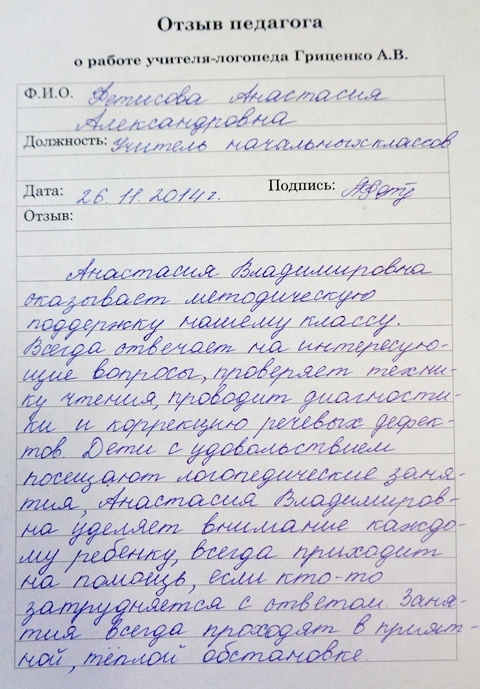 Отзыв педагога
о работе учителя-логопеда Гриценко А.В.
Ф.И.О. Фетисова Анастасия
Александровна
Должность: Учитель начальных классов
Дата: 26.11.2014г. Подпись:
Отзыв:
Анастасия Владимировна
оказывает методическую
поддержку нашему классу.
Всегда отвечает на интересую-
щие вопросы, проверяет техни-
ку чтения, проводит диагности-
ки и коррекцию речевых дефек-
тов. Дети с удовольствием
посещают логопедические заня-
тия, Анастасия Владимиров-
на уделяет внимание каждо-
му ребенку, всегда приходит
на помощь, если кто-то
затрудняется с ответом. Заня-
тия всегда проходят в прият-
ной, тёплой обстановке.